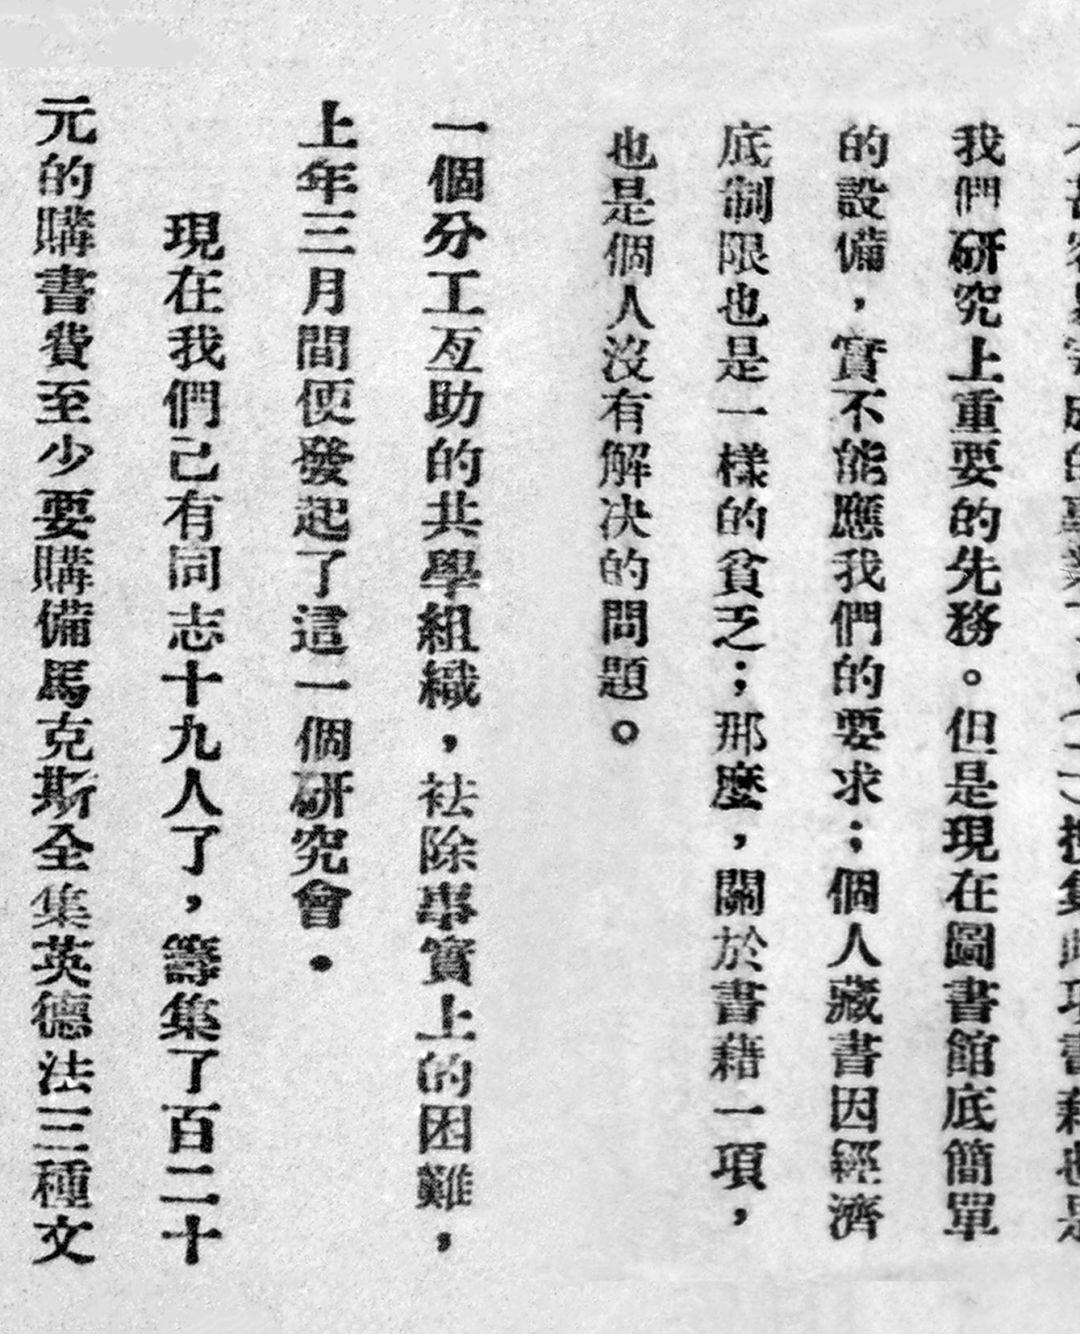 不甚容易完成的事業了。(二)搜集此項書藉也是
我們研究上重要的先務。但是現在圖書館底簡單
的設備，實不能應我們的要求；個人藏書因經濟
底制限也是一樣的貧乏；那麼，關於書藉一項，
也是個人沒有解决的問題。
一個分工互助的共學組織，祛除事實上的困難，
上年三月間便發起了這一個研究會．
現在我們已有同志十九人了，籌集了百二十
元的購書費至少要購備馬克斯全集英德法三種文